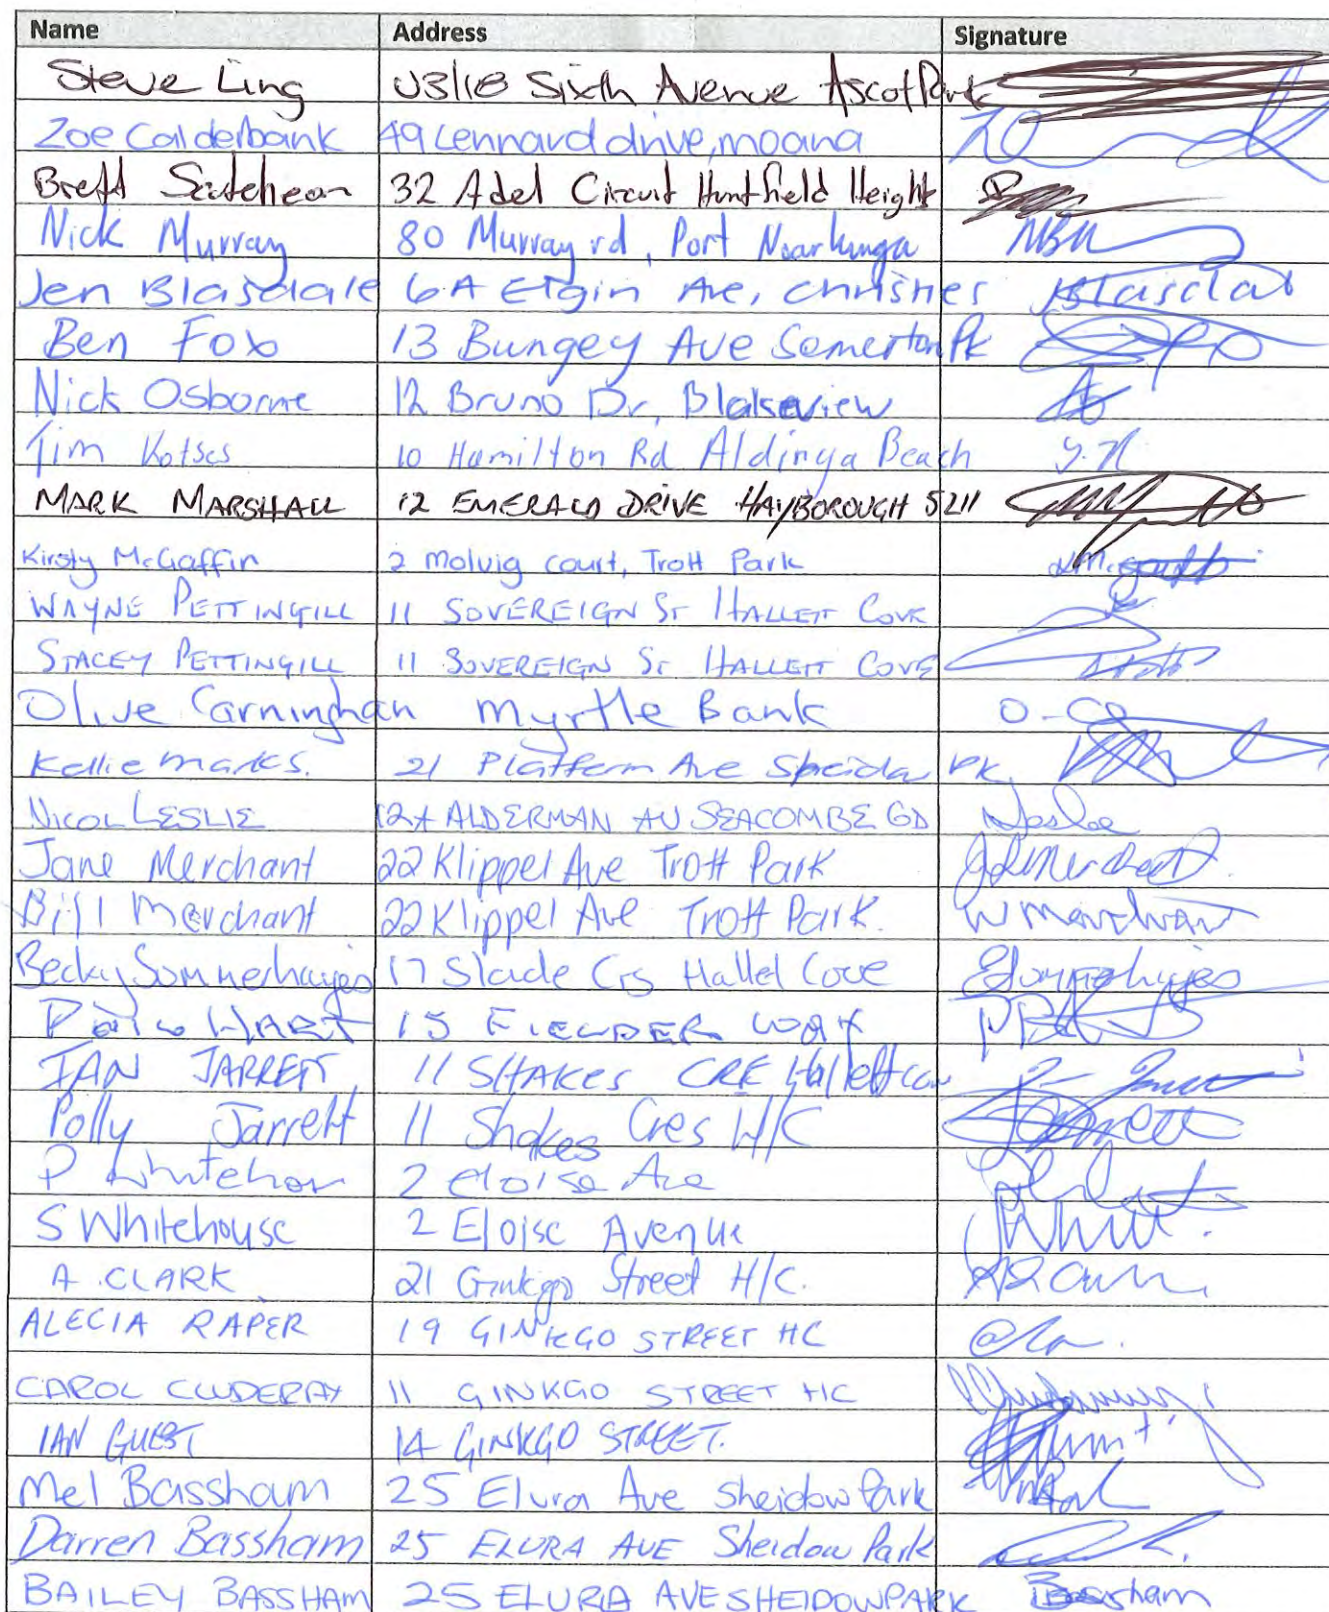 Name Address Signature
Steve Ling U3/18 Sixth Avenue Ascot Park
Zoe Calderbank 49 Lennard drive, moana
Brett 32 Adel Circuit Huntfield Height
Nick Murray 80 Murray rd, Port Noarlunga
Jen Blasdale 6A Elgin Ave, Christies JBlasdal
Ben Fox 13 Bungey Ave Somerton Pk
Nick Osborne 12 Bruno Dr, Blakeview
Tim Kotses 10 Hamilton Rd Aldinga Beach
MARK MARSHALL 12 EMERALD DRIVE HAYBOROUGH 5211
Kirsty McGaffin 2 molvig court, Trott Park
WAYNE PETTINGILL 11 SOVEREIGN ST HALLETT COVE
STACEY PETTINGILL 11 SOVEREIGN ST HALLETT COVE
Olive Carninghan Myrtle Bank
Kellie marks. 21 Platform Ave Sheidow PK.
NICOL LESLIE 12A ALDERMAN AV SEACOMBE GD
Jane Merchant 22 Klippel Ave Trott Park
Bill Merchant 22 Klippel Ave Trott Park. W Merchant
Becky Summerhayes 17 Slade Crs Hallet Cove
HART 15 WAY
IAN JARRETT 11 SHAKES CRE Hallett cov
Polly Jarrett 11 Shakes Cres H/C
P Whitehou 2 Eloise Ave
S Whitehouse 2 Eloise Avenue
A. CLARK 21 Ginkgo Street H/C.
ALECIA RAPER 19 GINKGO STREET HC
CAROL CLUDERAY 11 GINKGO STREET HC
IAN GUEST 14 GINKGO STREET.
Mel Bassham 25 Elura Ave Sheidow Park
Darren Bassham 25 ELURA AVE Sheidow Park
BAILEY BASSHAM 25 ELURA AVE SHEIDOW PARK Bassham